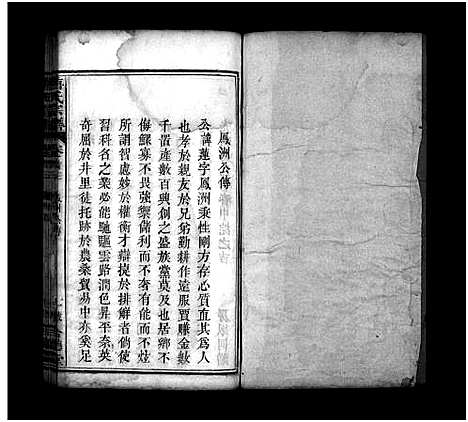 鳳洲公傳
公諱蓮字鳳洲秉性剛方存心質直其為人
也孝於親友於兄弟勤耕作遠服賈賺金數
千置產數百興創之盛族黨莫及也居鄉不
侮鰥寡不畏強禦儲利而不奢有能而不炫
所謂習處妙於權衡才辯捷於排解者倘使
習科名之業必能馳驅雲路潤色昇平奈英
奇屈於井里徒托跡於農桑貿易中亦奚足